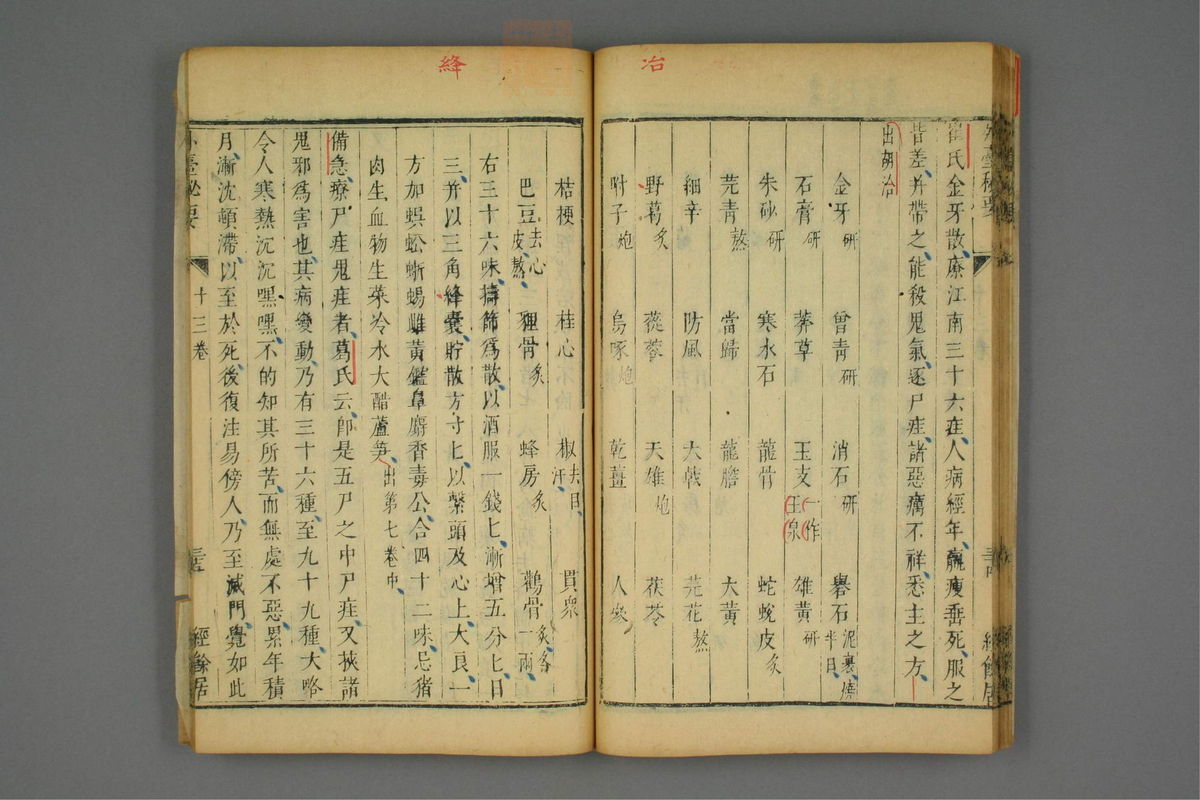 冶
崔氏金牙散療江南三十六疰人病經年羸瘦垂死服之
皆差并帶之能殺鬼氣逐尸疰諸惡癘不祥悉主之方
出胡洽
金牙研 曾青研 消石研 礜石泥裹燒半日
石膏研 莽草 玉支一作玉泉 雄黃研
朱砂研 寒水石 龍骨 蛇蛻皮炙
芫青熬 當歸 龍膽 大黃
細辛 防風 大戟 芫花熬
野葛炙 蓯蓉 天雄炮 茯苓
附子炮 烏啄炮 乾薑 人參
絳
桔梗 桂心 椒去目汗 貫衆
巴豆去心皮熬 狸骨炙 蜂房炙 鸛骨炙各一兩
右三十六味擣篩為散以酒服一錢匕漸增五分匕日
三并以三角絳囊貯散方寸匕以繫頭及心上大良一
方加蜈蚣蜥蜴雌黃鑑鼻麝香毒公合四十二味忌猪
肉生血物生菜冷水大醋蘆笋出第七卷中
備急療尸疰鬼疰者葛氏云即是五尸之中尸疰又挾諸
鬼邪為害也其病變動乃有三十六種至九十九種大略
令人寒熱沉沉嘿嘿不的知其所苦而無處不惡累年積
月漸沈頓滯以至於死後復注易傍人乃至滅門覺如此
外臺祕要 十三卷 經餘居